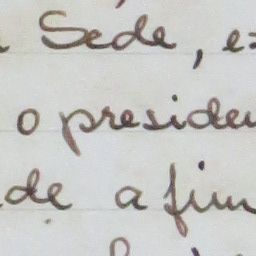 Sede, e
o presiden
de a fim